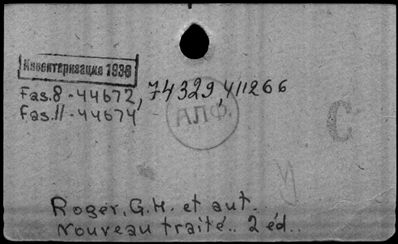 Инвентаризация 1936
Fas.8-44672, 74329, 411266
Fas.11-44674
АЛФ.
С
Roger, G.H. et aut.
Nouveau traité.. 2 éd..